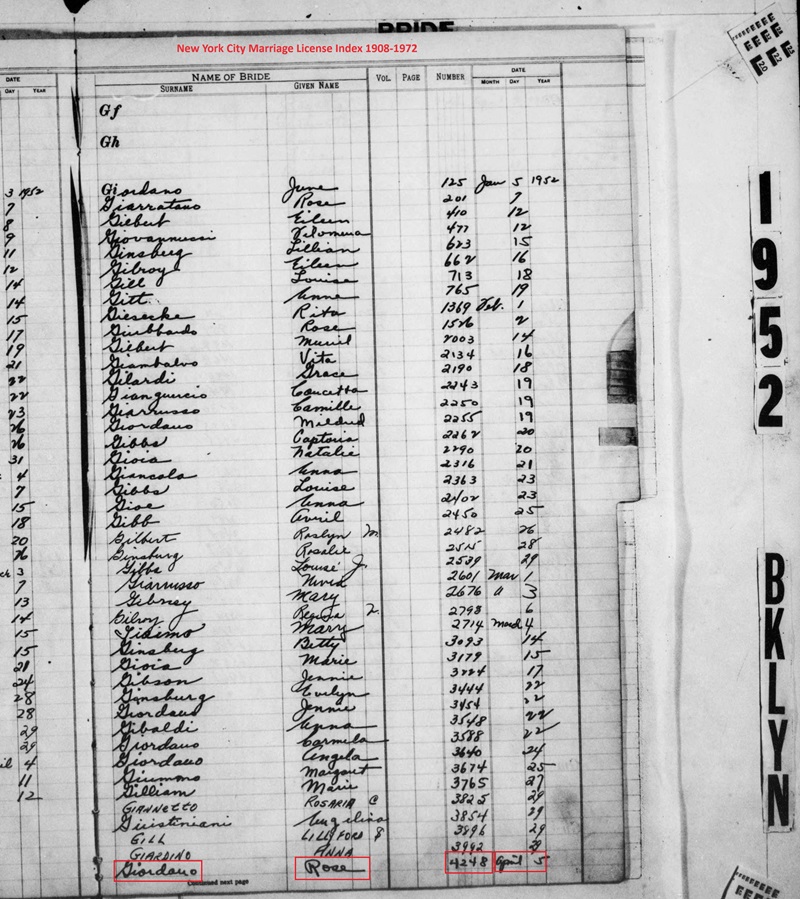 BRIDE
New York City Marriage License Index 1908-1972
DATE
DAY YEAR
3 1952
7
8
9
11
12
14
14
15
17
19
21
22
22
23
26
26
31
4
7
15
18
20
26
ch 3
7
13
14
15
15
21
24
28
28
29
29
il 4
11
12
NAME OF BRIDE VOL. PAGE NUMBER DATE
SURNAME GIVEN NAME MONTH DAY YEAR
Gf
Gh
Giordano June 125 Jan 5 1952
Giarratano Rose 201 7
Gilbert Eileen 410 12
Giovannucci Filomena 477 12
Ginsberg Lillian 623 15
Gilroy Eileen 662 16
Gill Louise 713 18
Gitt Anne 765 19
Giesecke Rita 1369 Feb. 1
Giubbardo Rose 1526 2
Gilbert Muriel 2003 14
Giambalvo Vita 2134 16
Gilardi Grace 2190 18
Gianquincio Concetta 2243 19
Giarrusso Camille 2250 19
Giordano Mildred 2255 19
Gibbs Captoria 2262 20
Gioia Natalie 2290 20
Giancola Anna 2316 21
Gibbs Louise 2363 23
Gioe Anna 2402 23
Gibb Avril 2450 25
Gilbert Roslyn M. 2482 26
Ginsburg Rosalie 2515 28
Gibbs Louise J. 2539 29
Giarrusso 2601 Mar 1
Gibney Mary 2676 " 3
Gilroy Regina V. 2793 6
Mary 2714 March 4
Ginsberg Betty 3093 14
Gioia Marie 3179 15
Gibson Jennie 3224 17
Ginsburg Evelyn 3444 22
Giordano Jennie 3454 22
Gibaldi Anna 3548 22
Giordano Carmela 3588 22
Giordano Angela 3640 24
Giummo Margaret 3674 25
Gilliam Marie 3765 27
GIANNETTO ROSARIA C 3825 29
Giustiniani Angelina 3854 29
GILL LILLYFORD S 3896 29
GIARDINO ANNA 3992 29
Giordano Rose 4248 April 5
Continued next page
1952
BKLYN